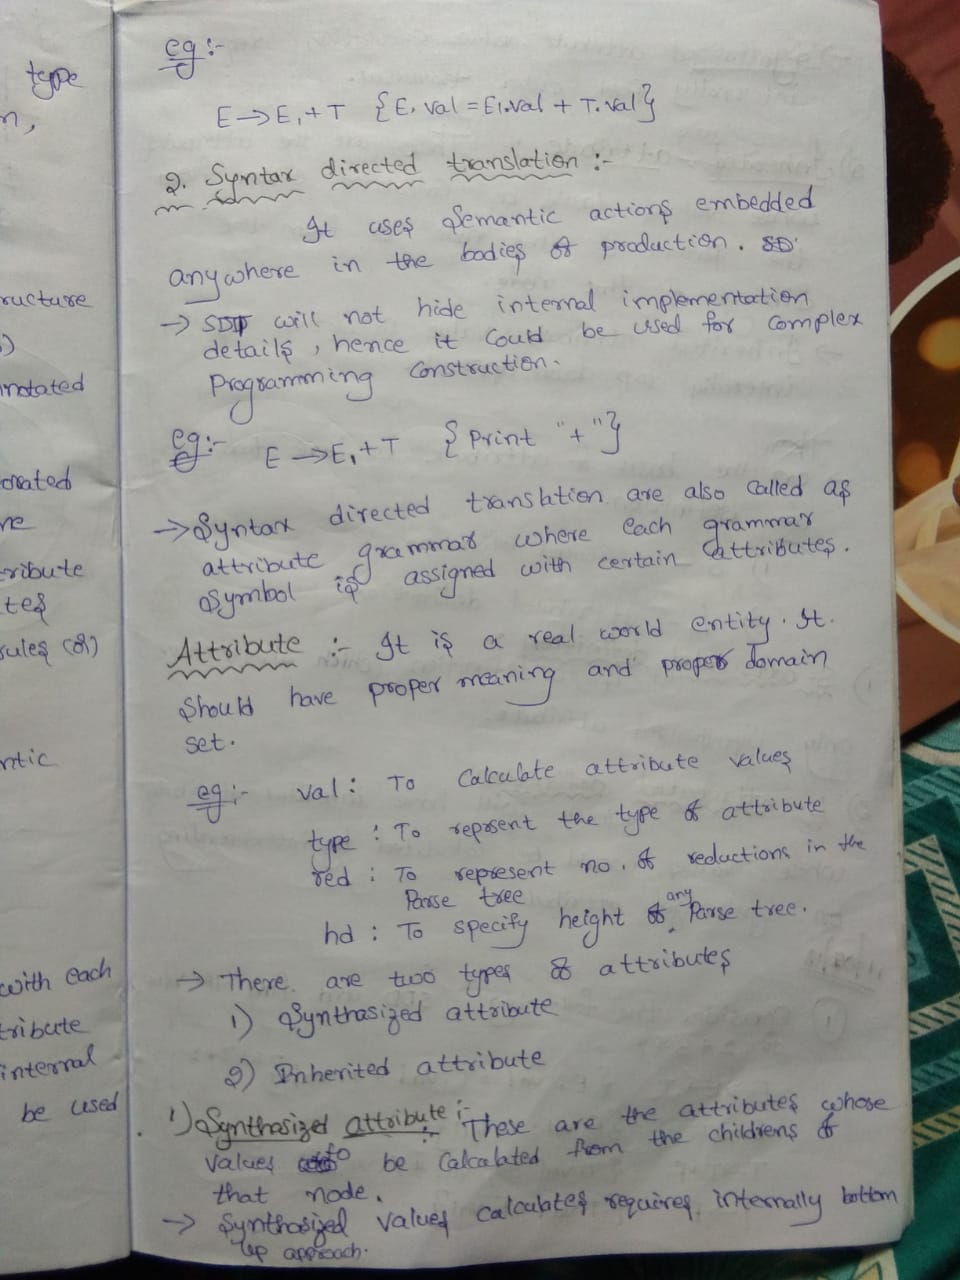 type
n,
ructure
)
nnotated
orated
ne
tribute
tes
rules (or)
ntic
with each
tribute
internal
be used
eg :-
E → E₁ + T {E. val = E₁.val + T.val}
2. Syntax directed translation :-
It uses semantic actions embedded
anywhere in the bodies of production.
→ SDT will not hide internal implementation
details, hence it could be used for complex
Programming construction.
eg:- E → E₁ + T { Print "+"}
→ Syntax directed translation are also called as
attribute grammar where each grammar
symbol is assigned with certain attributes.
Attribute :- It is a real world entity. It.
should have proper meaning and proper domain
set.
eg :- val : To Calculate attribute values
type : To reprsent the type of attribute
red : To represent no. of reductions in the
Parse tree
hd : To specify height of any Parse tree.
→ There are two types of attributes
1) Synthasized attribute
2) Inherited attribute
1) Synthasized attribute :- These are the attributes whose
values to be calculated from the childrens of
that node.
→ Synthasized values calculates requires internally bottom
up approach.